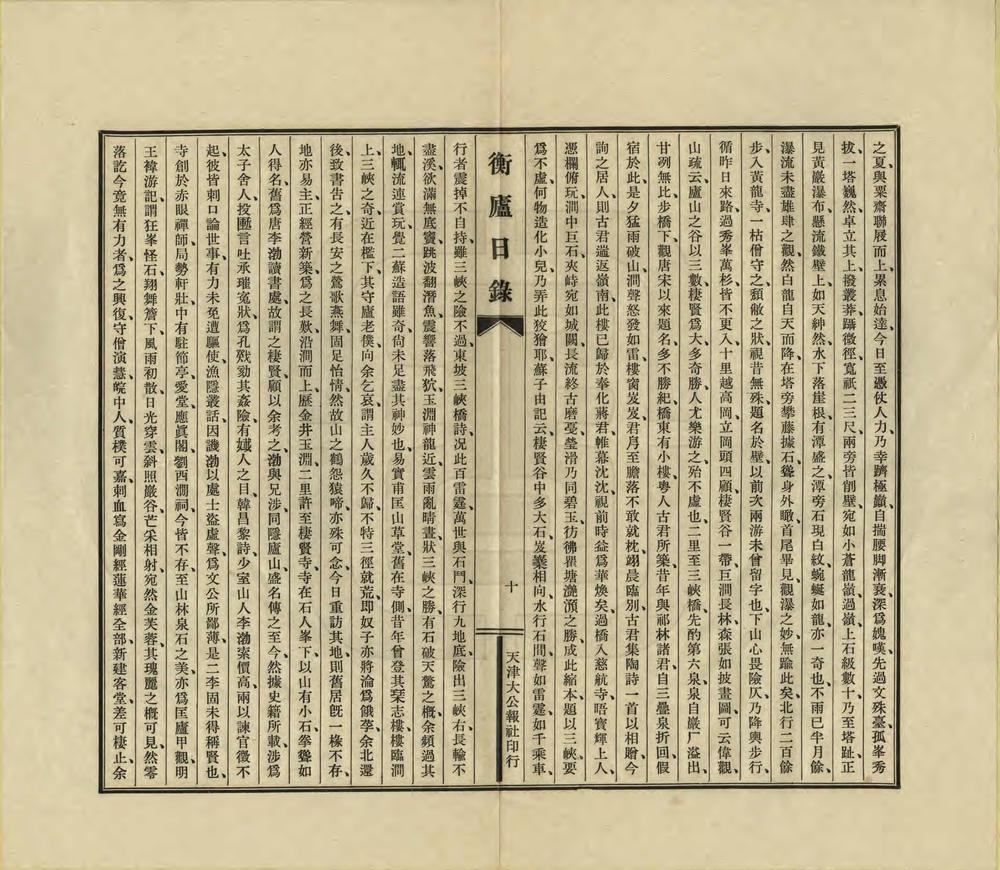 之夏、與粟齋聯屐而上、累息始達、今日至憑仗人力、乃幸躋極巔、自揣腰脚漸衰、深爲媿嘆、先過文殊臺、孤峯秀
拔、一塔巍然卓立其上、撥叢莽、躡微徑、寬祇二三尺、兩旁皆削壁、宛如小蒼龍嶺、過嶺上石級數十、乃至塔趾、正
見黃巖瀑布、懸流鐵壁上、如天紳然、水下落崖根、有潭盛之、潭旁石現白紋、蜿蜒如龍、亦一奇也、不雨已半月餘、
瀑流未盡雄肆之觀、然白龍自天而降、在塔旁攀藤據石、聳身外瞰、首尾畢見、觀瀑之妙、無踰此矣、北行二百餘
步、入黃龍寺、一枯僧守之、頹敝之狀、視昔無殊、題名於壁、以前次兩游未曾留字也、下山心畏險仄、乃降輿步行、
循昨日來路、過秀峯萬杉皆不更入、十里越高岡、立岡頭四顧、棲賢谷一帶、巨澗長林、森張如披畫圖、可云偉觀、
山疏云、廬山之谷以三數、棲賢爲大、多奇勝、人尤樂游之、殆不虛也、二里至三峽橋、先酌第六泉、泉自巖厂溢出、
甘冽無比、步橋下、觀唐宋以來題名、多不勝紀、橋東有小樓、粤人古君所築、昔年與祁林諸君、自三疊泉折回、假
宿於此、是夕猛雨破山、澗聲怒發如雷、樓窗岌岌、君房至膽落不敢就枕、翊晨臨別、古君集陶詩一首以相贈、今
詢之居人、則古君遄返嶺南、此樓已歸於奉化蔣君、帷幕沈沈、視前時益爲華煥矣、過橋入慈航寺、晤寶輝上人、
憑欄俯玩、澗中巨石夾峙、宛如城闕、長流終古磨戞、瑩滑乃同碧玉、彷彿瞿塘灔澦之勝、成此縮本、題以三峽、要
爲不虛、何物造化小兒、乃弄此狡獪耶、蘇子由記云、棲賢谷中多大石、岌嶪相向、水行石間、聲如雷霆、如千乘車、
衡廬日錄
十
天津大公報社印行
行者震掉不自持、雖三峽之險不過、東坡三峽橋詩、況此百雷霆、萬世與石鬥、深行九地底、險出三峽右、長輸不
盡溪、欲滿無底竇、跳波翻潛魚、震響落飛狖、玉淵神龍近、雲雨亂晴晝、狀三峽之勝、有石破天驚之概、余頻過其
地、輒流連賞玩、覺二蘇造語雖奇、尙未足盡其神妙也、易實甫匡山草堂、舊在寺側、昔年曾登其琹志樓、樓臨澗
上、三峽之奇、近在檻下、其守廬老僕向余乞哀、謂主人歲久不歸、不特三徑就荒、卽奴子亦將淪爲餓莩、余北還
後、致書告之、有長安之鶯歌燕舞、固足怡情、然故山之鶴怨猿啼、亦殊可念、今日重訪其地、則舊居旣一椽不存、
地亦易主、正經營新築、爲之長歎、沿澗而上、歷金井玉淵、二里許至棲賢寺、寺在石人峯下、以山有小石拳聳如
人得名、舊爲唐李渤讀書處、故謂之棲賢、顧以余考之、渤與兄涉同隱廬山、盛名傳之至今、然據史籍所載、涉爲
太子舍人、投匭言吐承璀寃狀、爲孔戣劾其姦險、有孅人之目、韓昌黎詩、少室山人李渤、索價高、兩以諫官徵不
起、彼皆刺口論世事、有力未免遭驅使、漁隱叢話因譏渤以處士盜虛聲、爲文公所鄙薄、是二李固未得稱賢也、
寺創於赤眼禪師、局勢軒壯、中有駐節亭愛堂應眞閣劉西澗祠、今皆不存、至山林泉石之美、亦爲匡廬甲觀、明
王褘游記、謂狂峯怪石、翔舞簷下、風雨初散、日光穿雲、斜照巖谷、芒采相射、宛然金芙蓉、其瑰麗之概可見、然零
落訖今、竟無有力者爲之興復、守僧演慧、皖中人、質樸可嘉、刺血寫金剛經蓮華經全部、新建客堂、差可棲止、余